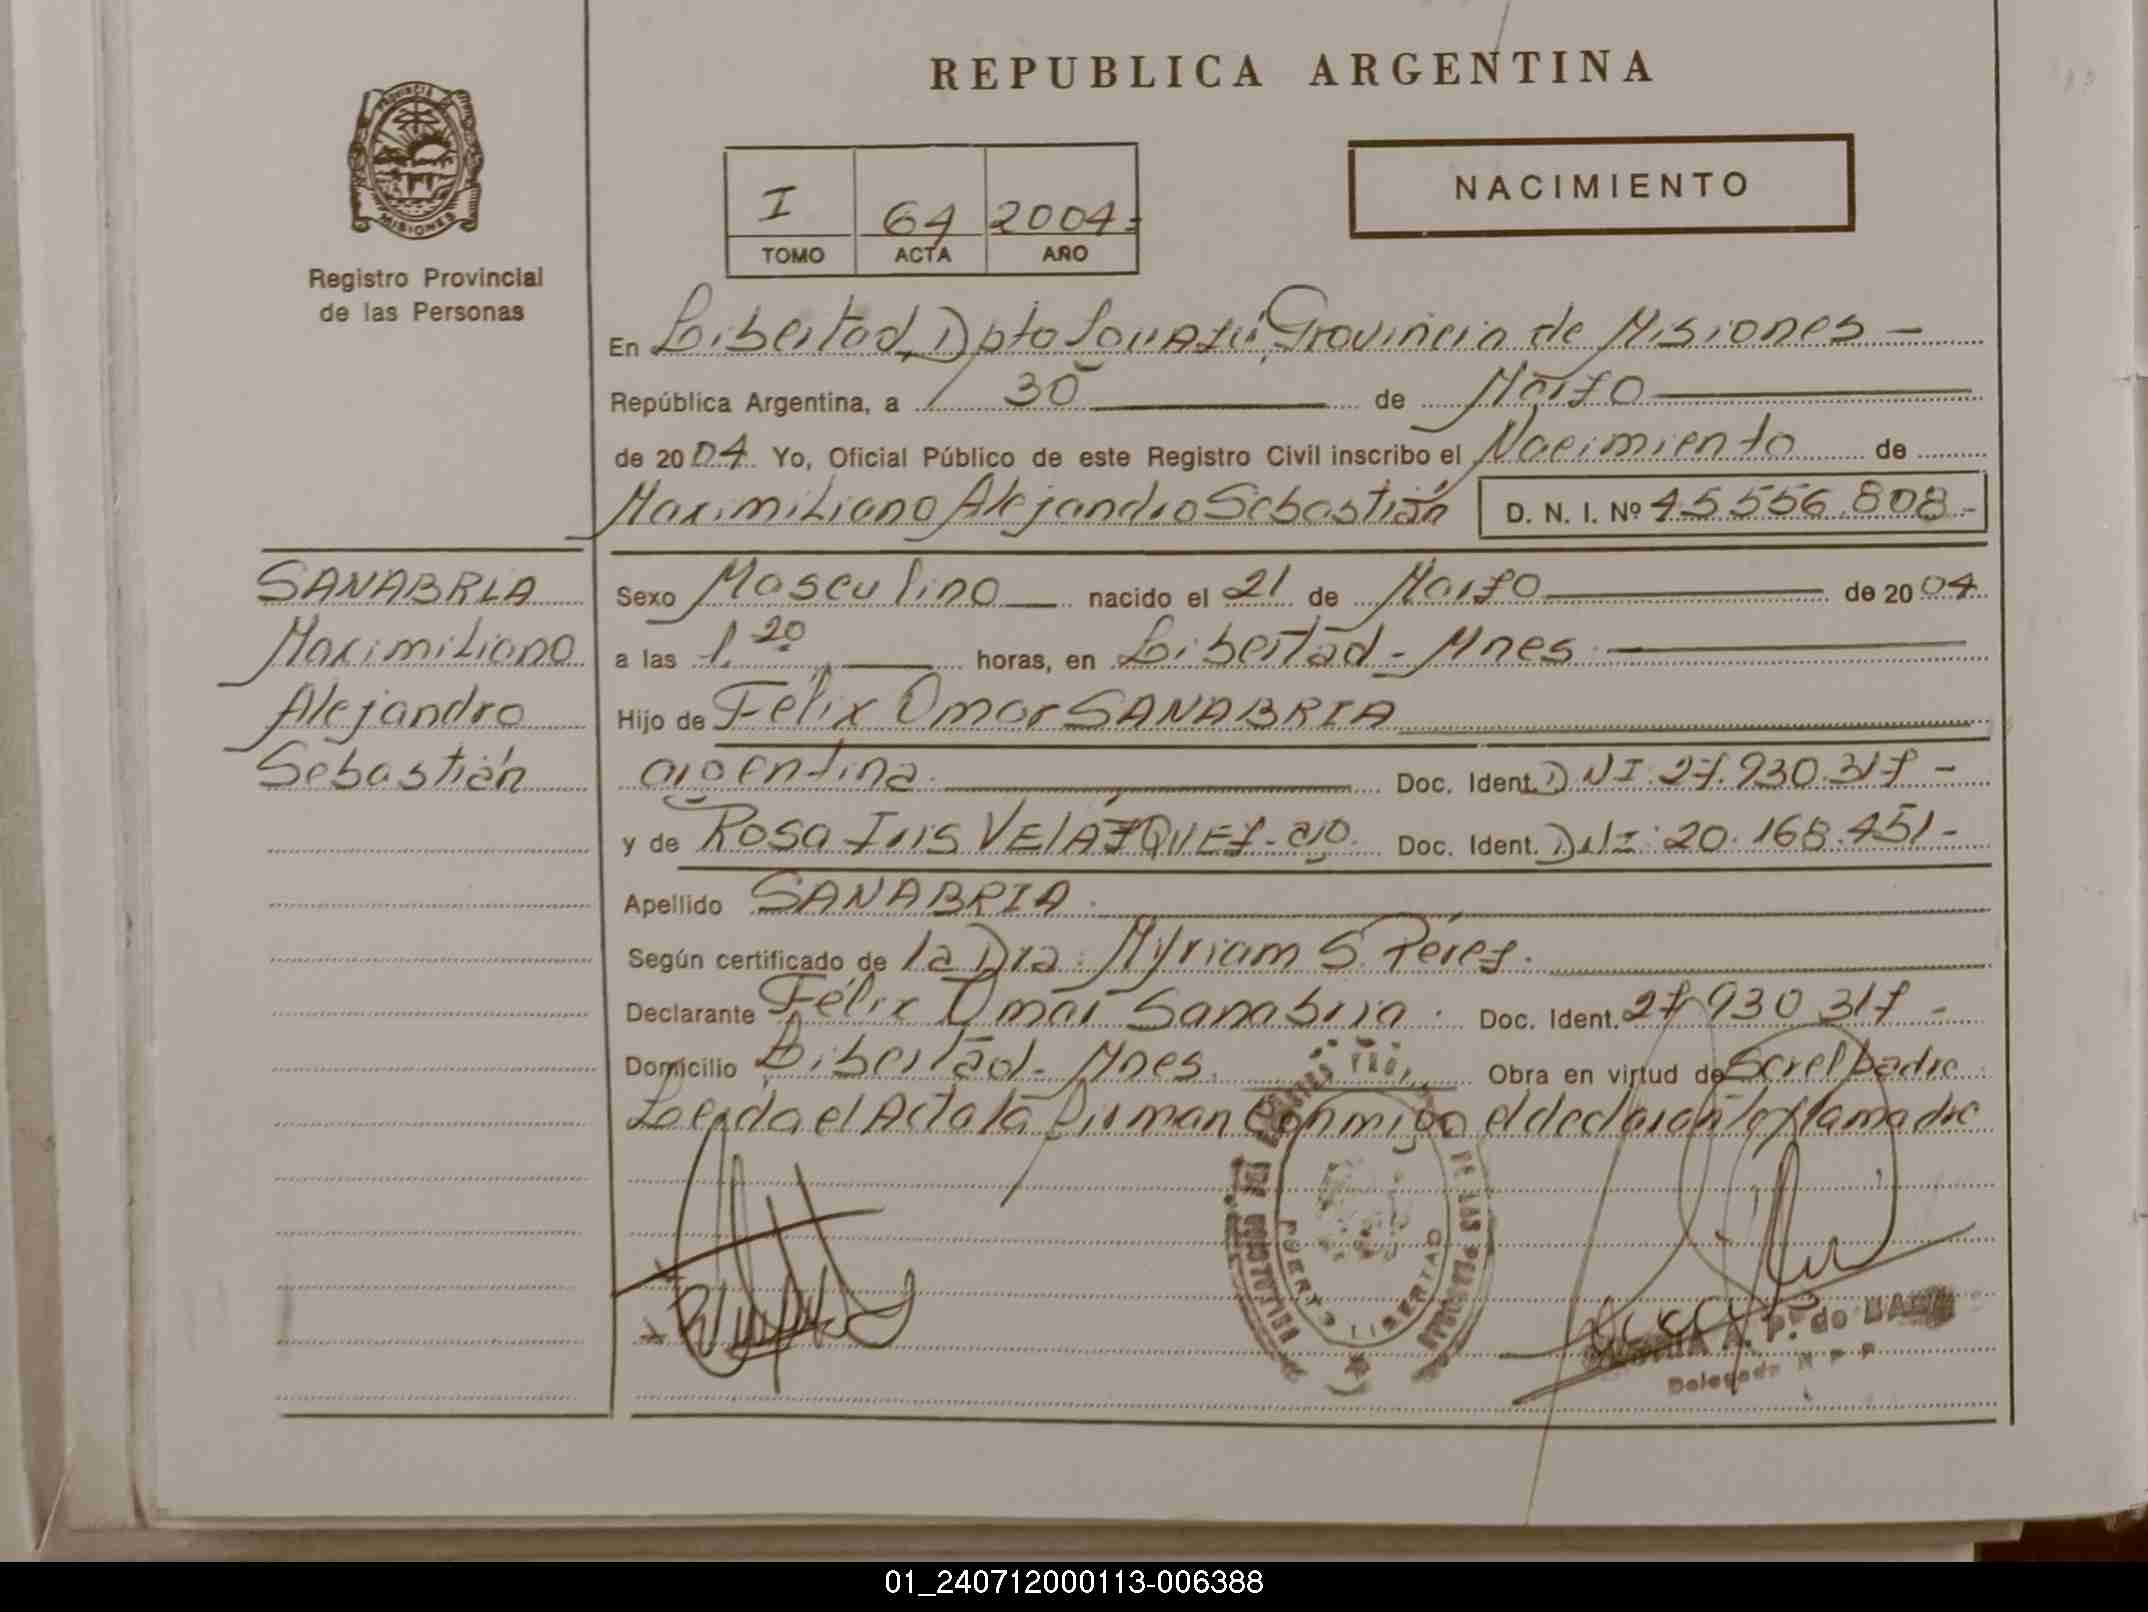 REPUBLICA ARGENTINA
PROVINCIA DE
MISIONES
Registro Provincial
de las Personas
I 64 2004=
TOMO ACTA AÑO
NACIMIENTO
En Libertad, Dpto Iguazú, Provincia de Misiones -
República Argentina, a 30 de Marzo
de 2004 Yo, Oficial Público de este Registro Civil inscribo el Nacimiento de
Maximiliano Alejandro Sebastián D. N. I. Nº 45.556.808-
SANABRIA
Maximiliano
Alejandro
Sebastián
Sexo Masculino nacido el 21 de Marzo de 2004
a las 1,20 horas, en Libertad - Mnes
Hijo de Félix Omar SANABRIA
argentina Doc. Ident. DNI. 27.930.317-
y de Rosa Iris VELAZQUEZ - arg. Doc. Ident. DNI: 20.168.451-
Apellido SANABRIA.
Según certificado de la Dra. Myriam S. Pérez.
Declarante Félix Omar Sanabria. Doc. Ident. 27.930.317-
Domicilio Libertad - Mnes. Obra en virtud de Ser el padre
Leída el Acta la firman conmigo el declarante y la madre
DE LAS
PUERTO LIBERTAD
A. P. de
Delegada R P P
01_240712000113-006388